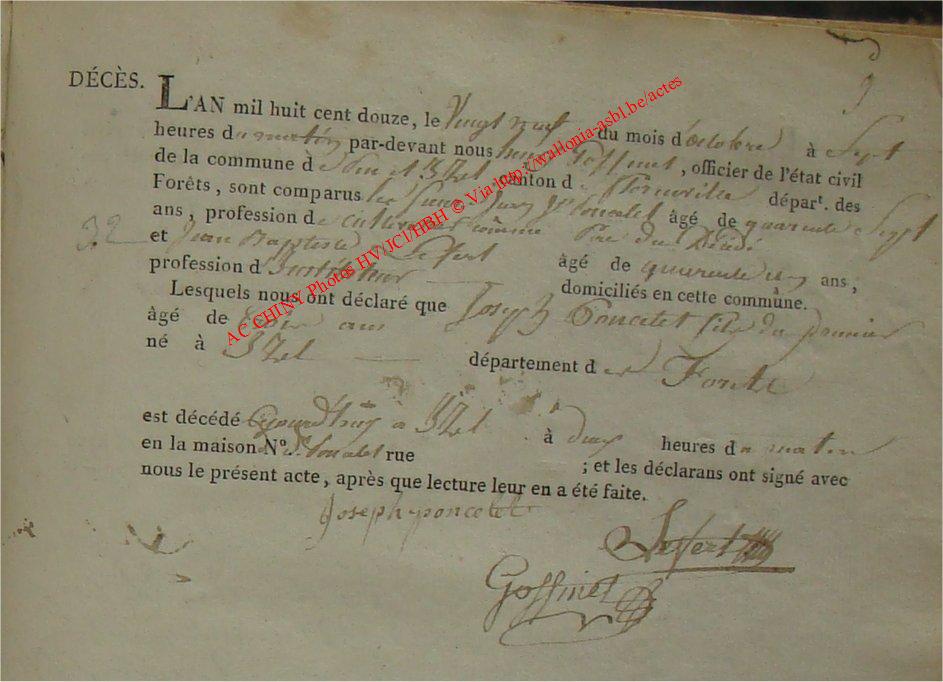 DÉCÈS. L'AN mil huit cent douze, le Vingt neuf du mois d'octobre à Sept
heures du matin par-devant nous Goffinet, officier de l'état civil
de la commune d et IZel canton d florenville départ. des
Forêts, sont comparus les Joseph Poncelet âgé de quarente Sept
ans, profession de cultivateur comme Pere du Dédé
32
et Jean Baptiste Lefert âgé de quarente ans,
profession d Instituteur domiciliés en cette commune.
Lesquels nous ont déclaré que Joseph Poncelet fils du premier
âgé de trois ans
né à IZel département des Forets
est décédé à IZel à deux heures du matin
en la maison N°. Poncelet rue ; et les déclarans ont signé avec
nous le présent acte, après que lecture leur en a été faite.
Joseph poncelet
Lefert
Goffinet
AC CHINY Photos HV/JCI/HBH © Via http://wallonia-asbl.be/actes